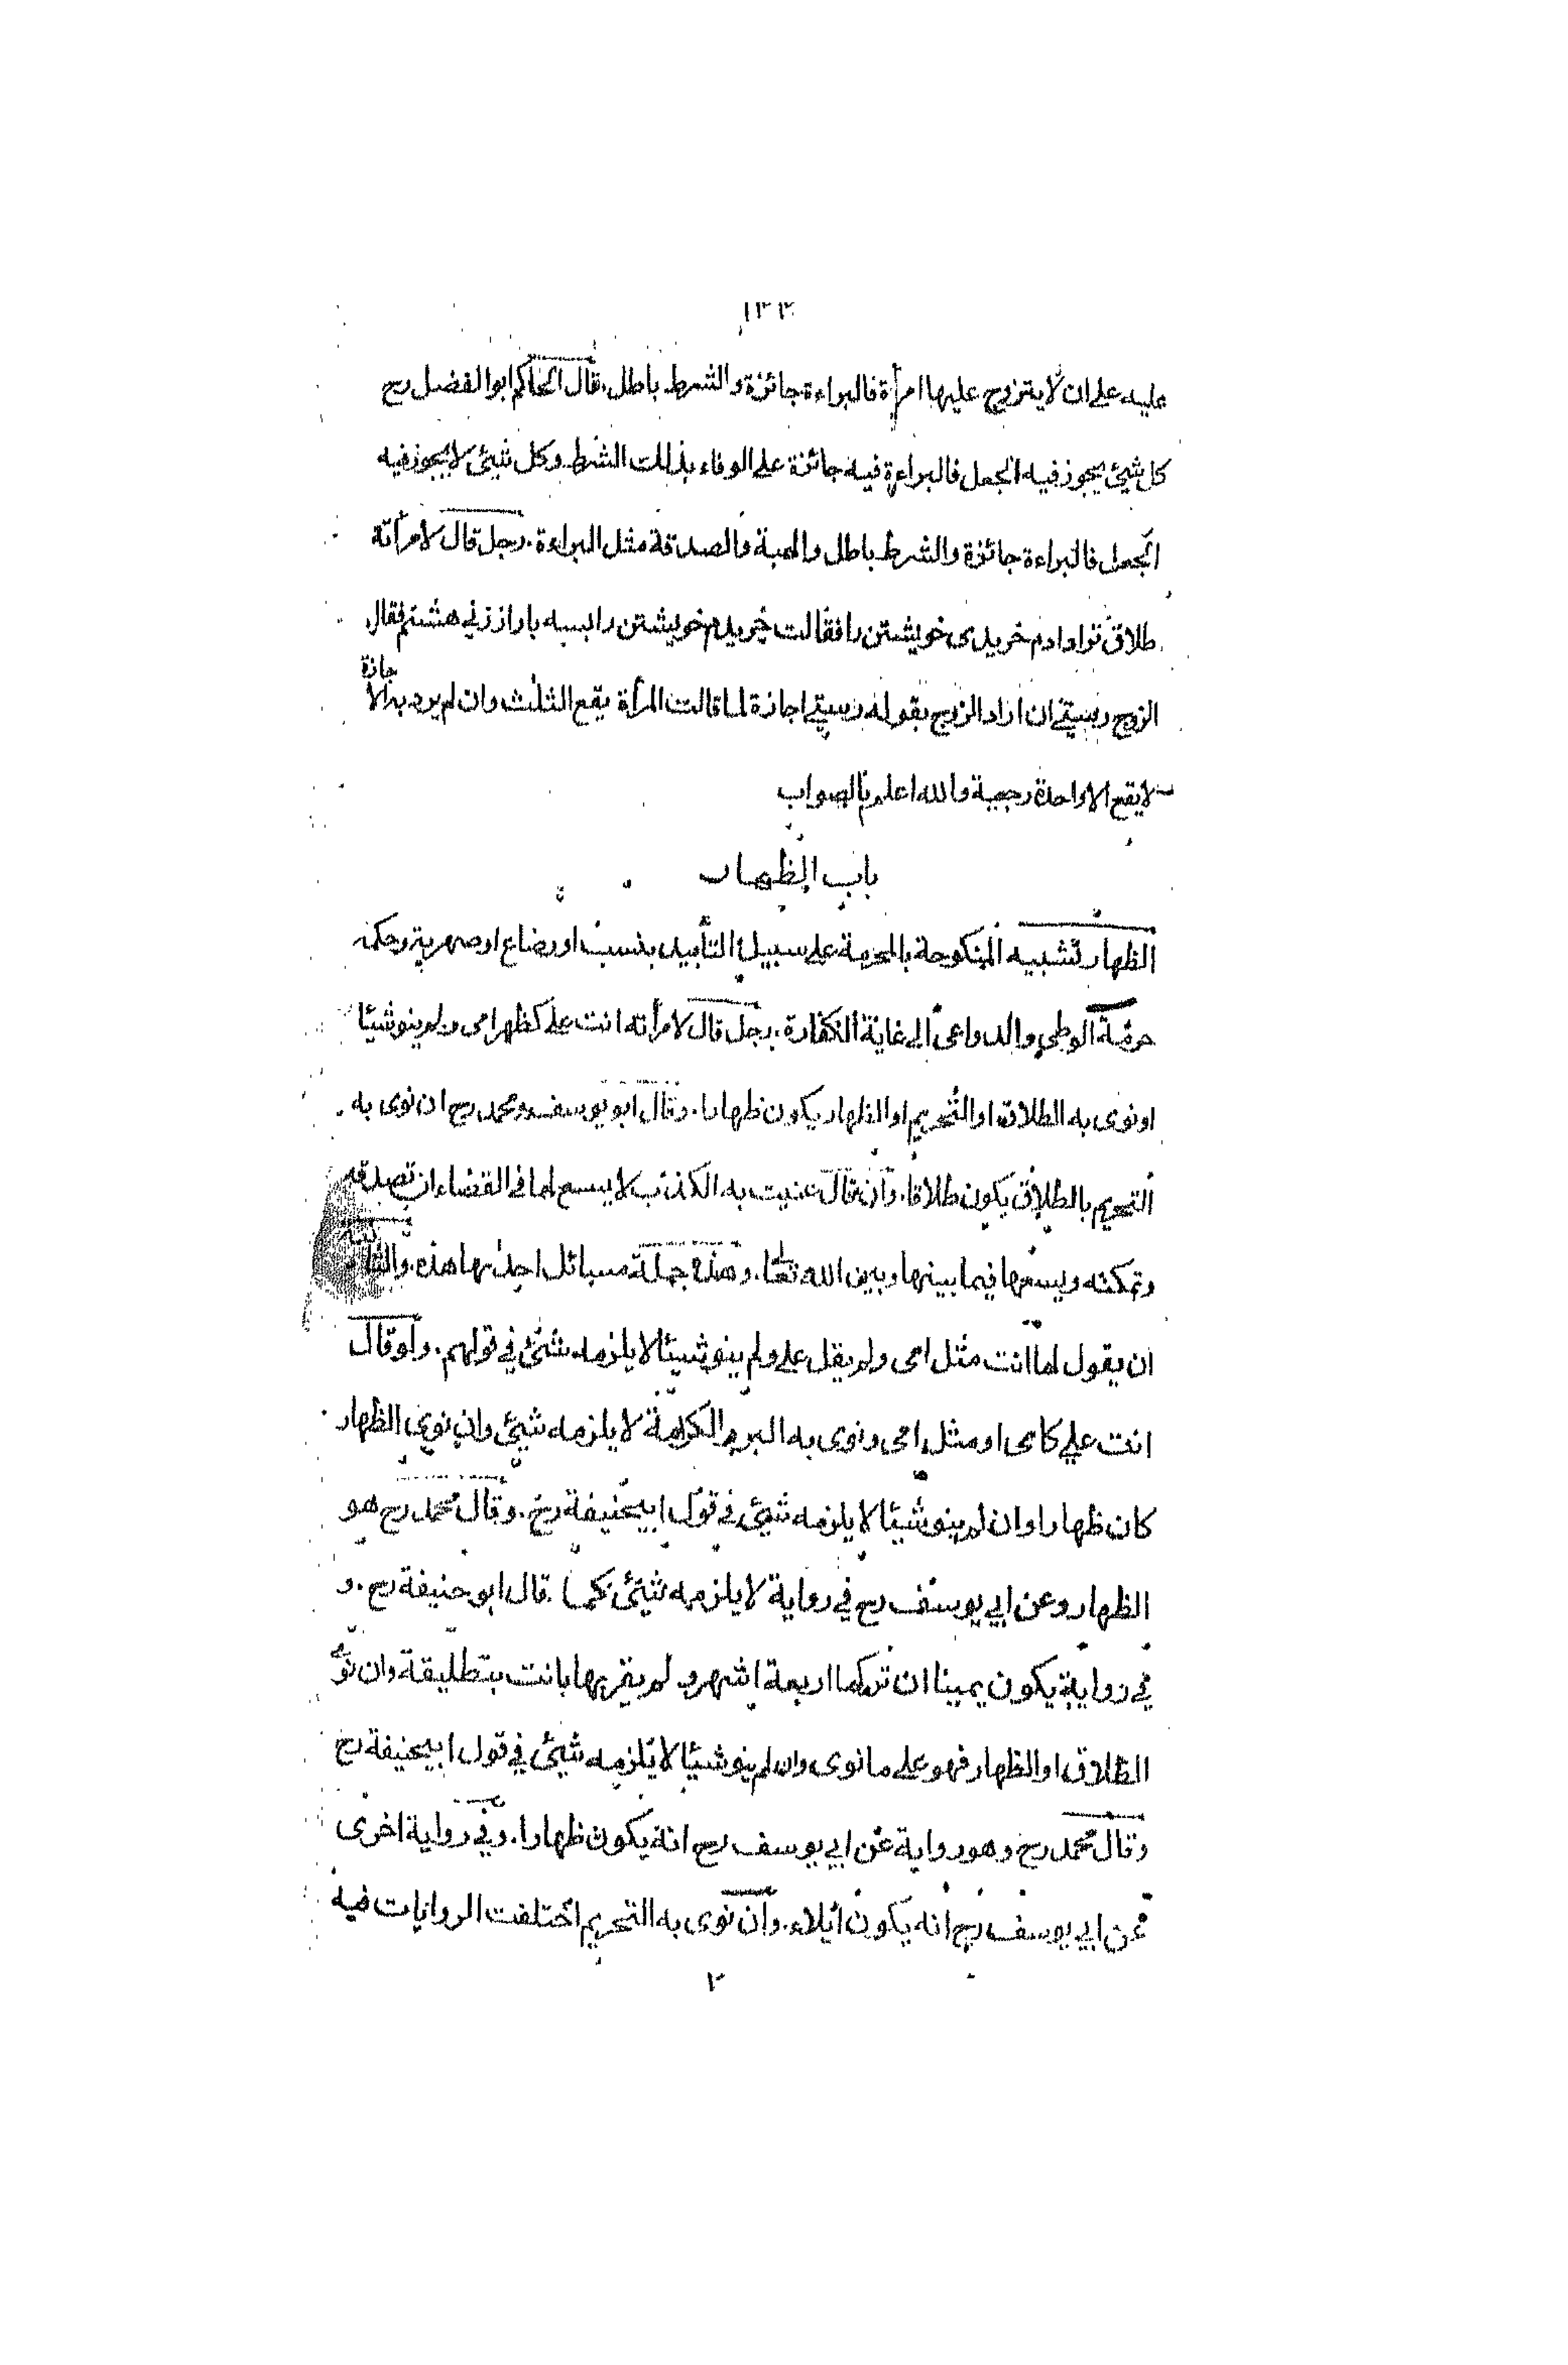 ١٣٣
عليه على ان لا يتزوج عليها امرأة فالبراءة جائزة والشرط باطل. قال الحاكم ابو الفضل رح
كل شيئ يجوز فيه الجعل فالبراءة فيه جائزة على الوفاء بذلك الشرط وكل شيئ لا يجوز فيه
الجعل فالبراءة جائزة والشرط باطل والهبة والصدقة مثل البراءة. رجل قال لامرأته
طلاق ترا دادم خريدى خويشتن را فقالت خريدم خويشتن را بسه بار از زني هشتم فقال
الزوج رستي ان اراد الزوج بقوله رستي اجازة لما قالت المرأة يقع الثلث وان لم يرد به الاجازة
لا يقع الا واحدة رجعية والله اعلم بالصواب
باب الظهار
الظهار تشبيه المنكوحة بالمحرمة على سبيل التأبيد بنسب او رضاع او صهرية وحكمه
حرمة الوطي والدواعى الى غاية الكفارة. رجل قال لامرأته انت علي كظهر امى ولم ينو شيئا
او نوى به الطلاق او التحريم او الظهار يكون ظهارا. وقال ابو يوسف ومحمد رح ان نوى به
التحريم بالطلاق يكون طلاقا. وان قال عنيت به الكذب لا يسع لها في القضاء ان تصدقه
وتمكنه ويسعها فيما بينها وبين الله تعا. وهذه جملة مسائل احدٰيها هذه. والثانية
ان يقول لها انت مثل امى ولم يقل علي ولم ينو شيئا لا يلزمه شئ في قولهم. ولو قال
انت علي كامى او مثل امى ونوى به البر والكرامة لا يلزمه شيئ وان نوى الظهار
كان ظهارا وان لم ينو شيئا لا يلزمه شيئ في قول ابيحنيفة رح. وقال محمد رح هو
الظهار وعن ابي يوسف رح في رواية لا يلزمه شيئ كما قال ابو حنيفة رح. و
في رواية يكون يمينا ان تركها اربعة اشهر و لم يقربها بانت بتطليقة وان نوى
الطلاق او الظهار فهو على ما نوى وان لم ينو شيئا لا يلزمه شيئ في قول ابيحنيفة رح
وقال محمد رح وهو رواية عن ابي يوسف رح انه يكون ظهارا. وفي رواية اخرى
عن ابي يوسف رح انه يكون ايلاء. وان نوى به التحريم اختلفت الروايات فيه
٢